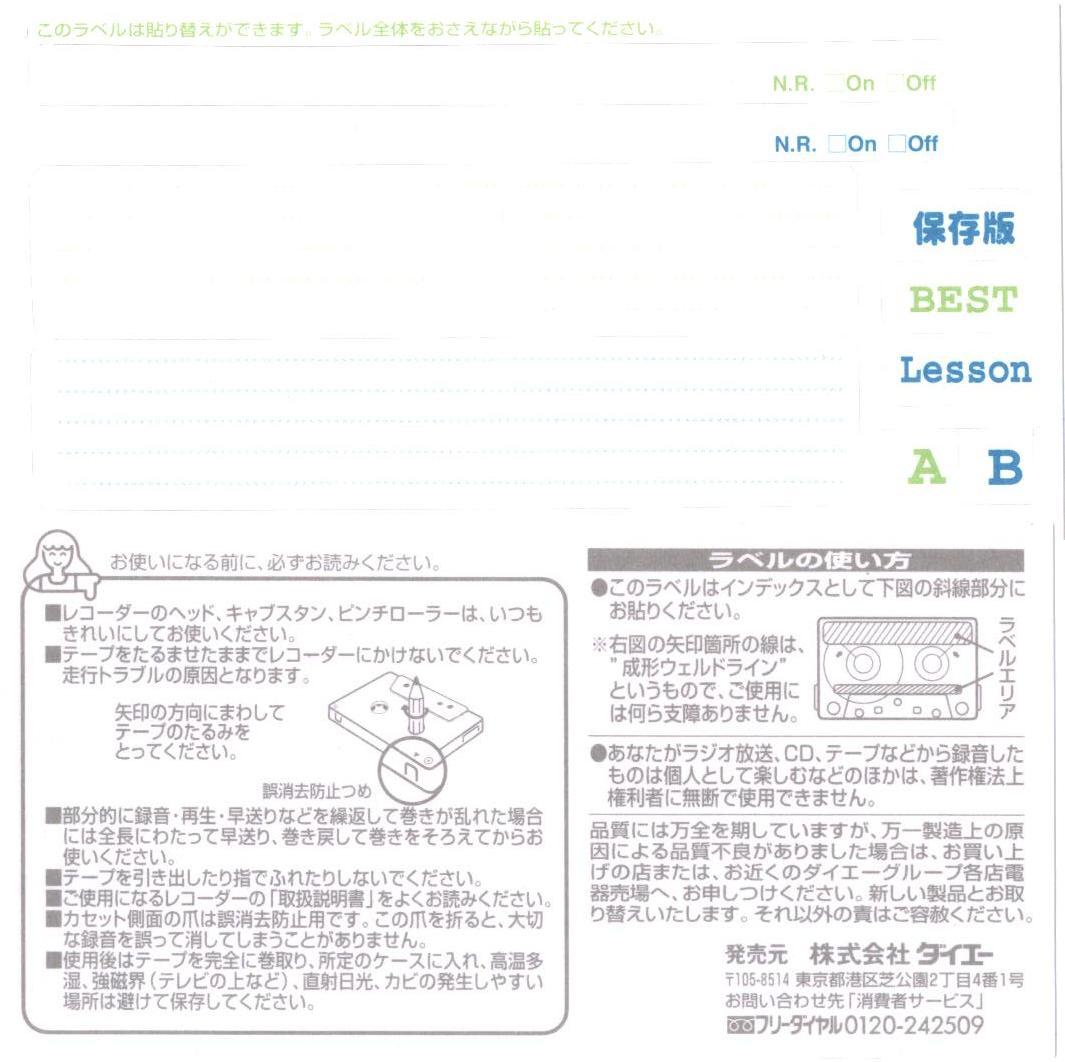 このラベルは貼り替えができます。ラベル全体をおさえながら貼ってください。
N.R. □On □Off
N.R. □On □Off
保存版
BEST
Lesson
A B
お使いになる前に、必ずお読みください。
■レコーダーのヘッド、キャプスタン、ピンチローラーは、いつも
きれいにしてお使いください。
■テープをたるませたままでレコーダーにかけないでください。
走行トラブルの原因となります。
矢印の方向にまわして
テープのたるみを
とってください。
誤消去防止つめ
■部分的に録音・再生・早送りなどを繰返して巻きが乱れた場合
には全長にわたって早送り、巻き戻して巻きをそろえてからお
使いください。
■テープを引き出したり指でふれたりしないでください。
■ご使用になるレコーダーの「取扱説明書」をよくお読みください。
■カセット側面の爪は誤消去防止用です。この爪を折ると、大切
な録音を誤って消してしまうことがありません。
■使用後はテープを完全に巻取り、所定のケースに入れ、高温多
湿、強磁界(テレビの上など)、直射日光、カビの発生しやすい
場所は避けて保存してください。
ラベルの使い方
●このラベルはインデックスとして下図の斜線部分に
お貼りください。
※右図の矢印箇所の線は、
"成形ウェルドライン"
というもので、ご使用に
は何ら支障ありません。
ラベルエリア
●あなたがラジオ放送、CD、テープなどから録音した
ものは個人として楽しむなどのほかは、著作権法上
権利者に無断で使用できません。
品質には万全を期していますが、万一製造上の原
因による品質不良がありました場合は、お買い上
げの店または、お近くのダイエーグループ各店電
器売場へ、お申しつけください。新しい製品とお取
り替えいたします。それ以外の責はご容赦ください。
発売元 株式会社 ダイエー
〒105-8514 東京都港区芝公園2丁目4番1号
お問い合わせ先「消費者サービス」
フリーダイヤル0120-242509